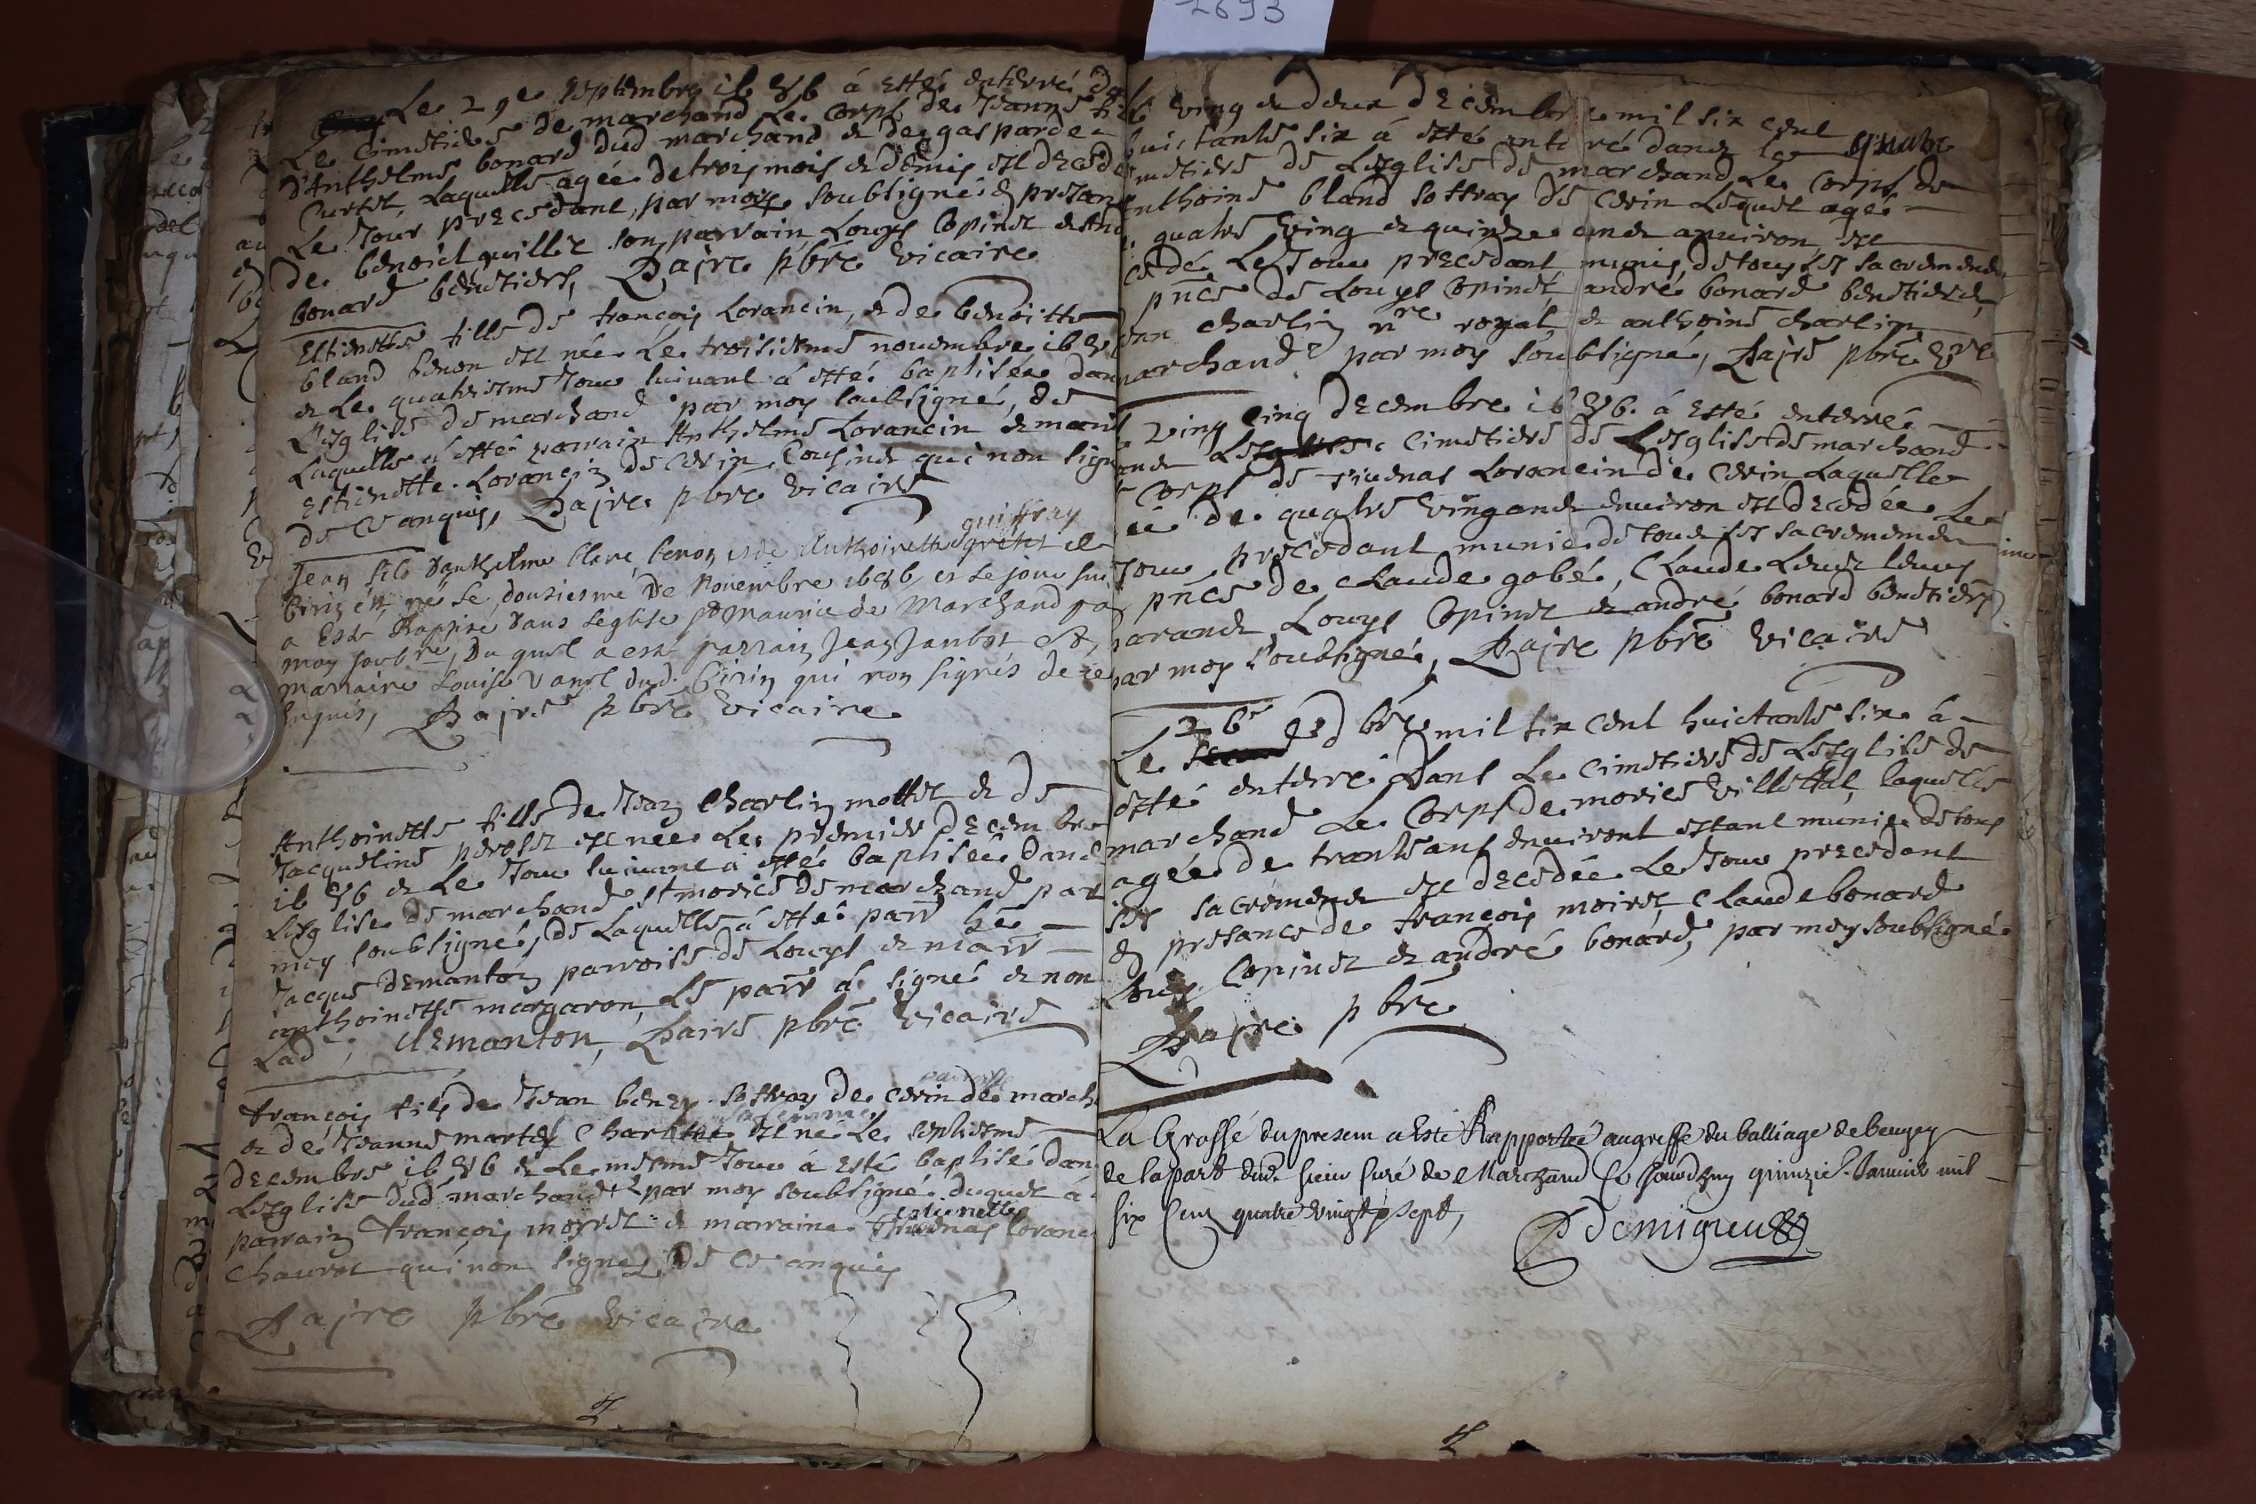 2693
Le 29e septembre 1686 á Esté enterré da
Le Cimetiere de marchand Le Corps de Jeanne fil
D'Anthelme bonard dud marchand & de gasparde
Curtet, Laquelle agée de trois mois & demis est decede
Le Jour precedant, par moy soubsigné e presan
de benoict quillie son parrain Louys Copinet & And
bonard benetiers, Dajre pbre vicaire
Estienette fille de françois Lorancin, & de benoitte
bland benon est née Le troisieme novembre 168
& Le quatrieme Jour suivant á esté baptisée dan
L'esglise de marchand par moy soubsigné, de
Laquelle á esté parrain Anthelme Lorancin & mari
estienette Lorancin de Cerin Cousine qui non sign
de Ce enquis, Dajre pbre vicaire
guiffray
Jean fils d'anthelme Clere benon & de Anthoinette de
Cirin est né Le dousiesme De Novembre 1686 et Le jour sui
a Esté Baptise dans Leglise st Maurice de Marchand pa
moy soubne, Du quel a esté parrain Jean Janbot & Et,
marraine Louise vanel dud. Cirin qui non signés de ce
Enquis, Dajre pbre vicaire
Anthoinette fille de Jean Charlin mottet & de
Jacqueline perosset est née Le premier decembre
1686 & Le Jour suivant á esté baptisée dans
Lesglise de marchand st morice de marchand par
moy soubsigné, de Laquelle á esté parr he
Jacque demanton parroisse de Louys & marr
anthoinette margaron, Le parr á signé & non
Lad, demanton, Dajre pbre vicaire
parroisse
françois fils de Jean beney soffray de Cerin de march
sa femme
& de Jeanne martel est né Le septiesme
Decembre 1686 & Le mesme Jour á Esté baptisé dan
Lesglise dud marchand par moy soubsigné, duquel á
estienette
parrain françois moyret & marraine Loranc
Chauvet qui non signe, de Ce anquis
Dajre pbre vicaire
Le ving & deux Decembre mil six cent quatre
huictante six á esté enterré dans le
Cimetiere de Lesglise de marchand Le Corps de
anthoine bland soffray de Cerin Lequel agé
de quatre ving & quinze ans anviron est
cedé Le Jour precedant, munis de tous ses sacremens
pnce de Louys Copinet andré bonard benetiers,
Jean charlin nre royal & anthoine charlin
marchand par moy soubsigné, Dajre pbre vre
Le ving cinq decembre 1686 á esté enterré
dans Cimetiere de Lesglise de marchand
Le Corps de Lorancin de Cerin Laquelle
agée de quatre ving ans environ est decedée Le
Jour precedant munie de tous ses sacremens
pnce de Claude gobé, Claude
Louys Copinet & andré bonard benetiers
par moy soubsigné, Dajre pbre vicaire
Le 26e xbre mil six cent huictante six á
esté enterré dans Le Cimetiere de Lesglise de
marchand Le Corps de morise villettat, laquelle
agée de trante ans environt estant munie de tous
ses sacremens est decedée Le Jour precedant
e presance de françois moiret, Claude bonard
Louys Copinet & andré bonard, par moy soubsigné
Dajre pbre
La Grosse du present a Esté Rapportée au greffe du balliage de beugey
de la part dud. sieur Curé de Marchand Ce jourdhuy quinzie. Janvier mil
six Cent quatre vingt sept,
Demigieu